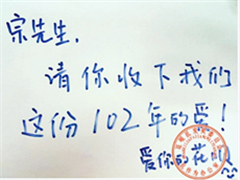 宗先生.
请你收下我们
这份102年的爱!
爱你的花